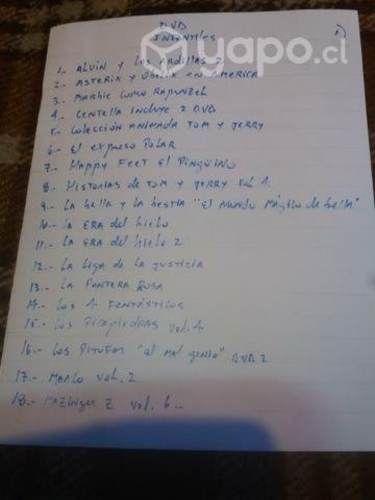 DVD
INFANTILES
1)
yapo.cl
1.- ALVIN y LAS ARDILLAS 2
2.- ASTERIX y OBELIX EN AMERICA
3.- BARBIE COMO RAPUNZEL
4.- CENTELLA INCLUYE 2 DVD
5.- COLECCIÓN ANIMADA TOM y JERRY
6.- El EXPRESO POLAR
7.- HAPPY FEET El PINGÜINO
8.- HISTORIAS DE TOM y JERRY Vol 1.
9.- LA bella y LA bestia "El MUNDO MÁGICO de bella"
10.- LA ERA del hielo
11.- LA ERA del hielo 2
12.- LA LIGA DE LA JUSTICIA
13.- LA PANTERA ROSA
14.- LOS 4 FANTÁSTICOS
15.- LOS PICAPIEDRAS Vol. 1
16.- LOS PITUFOS "al mal genio" DVD 2
17.- Vol. 2
18.- MAZINGER Z Vol. 6..